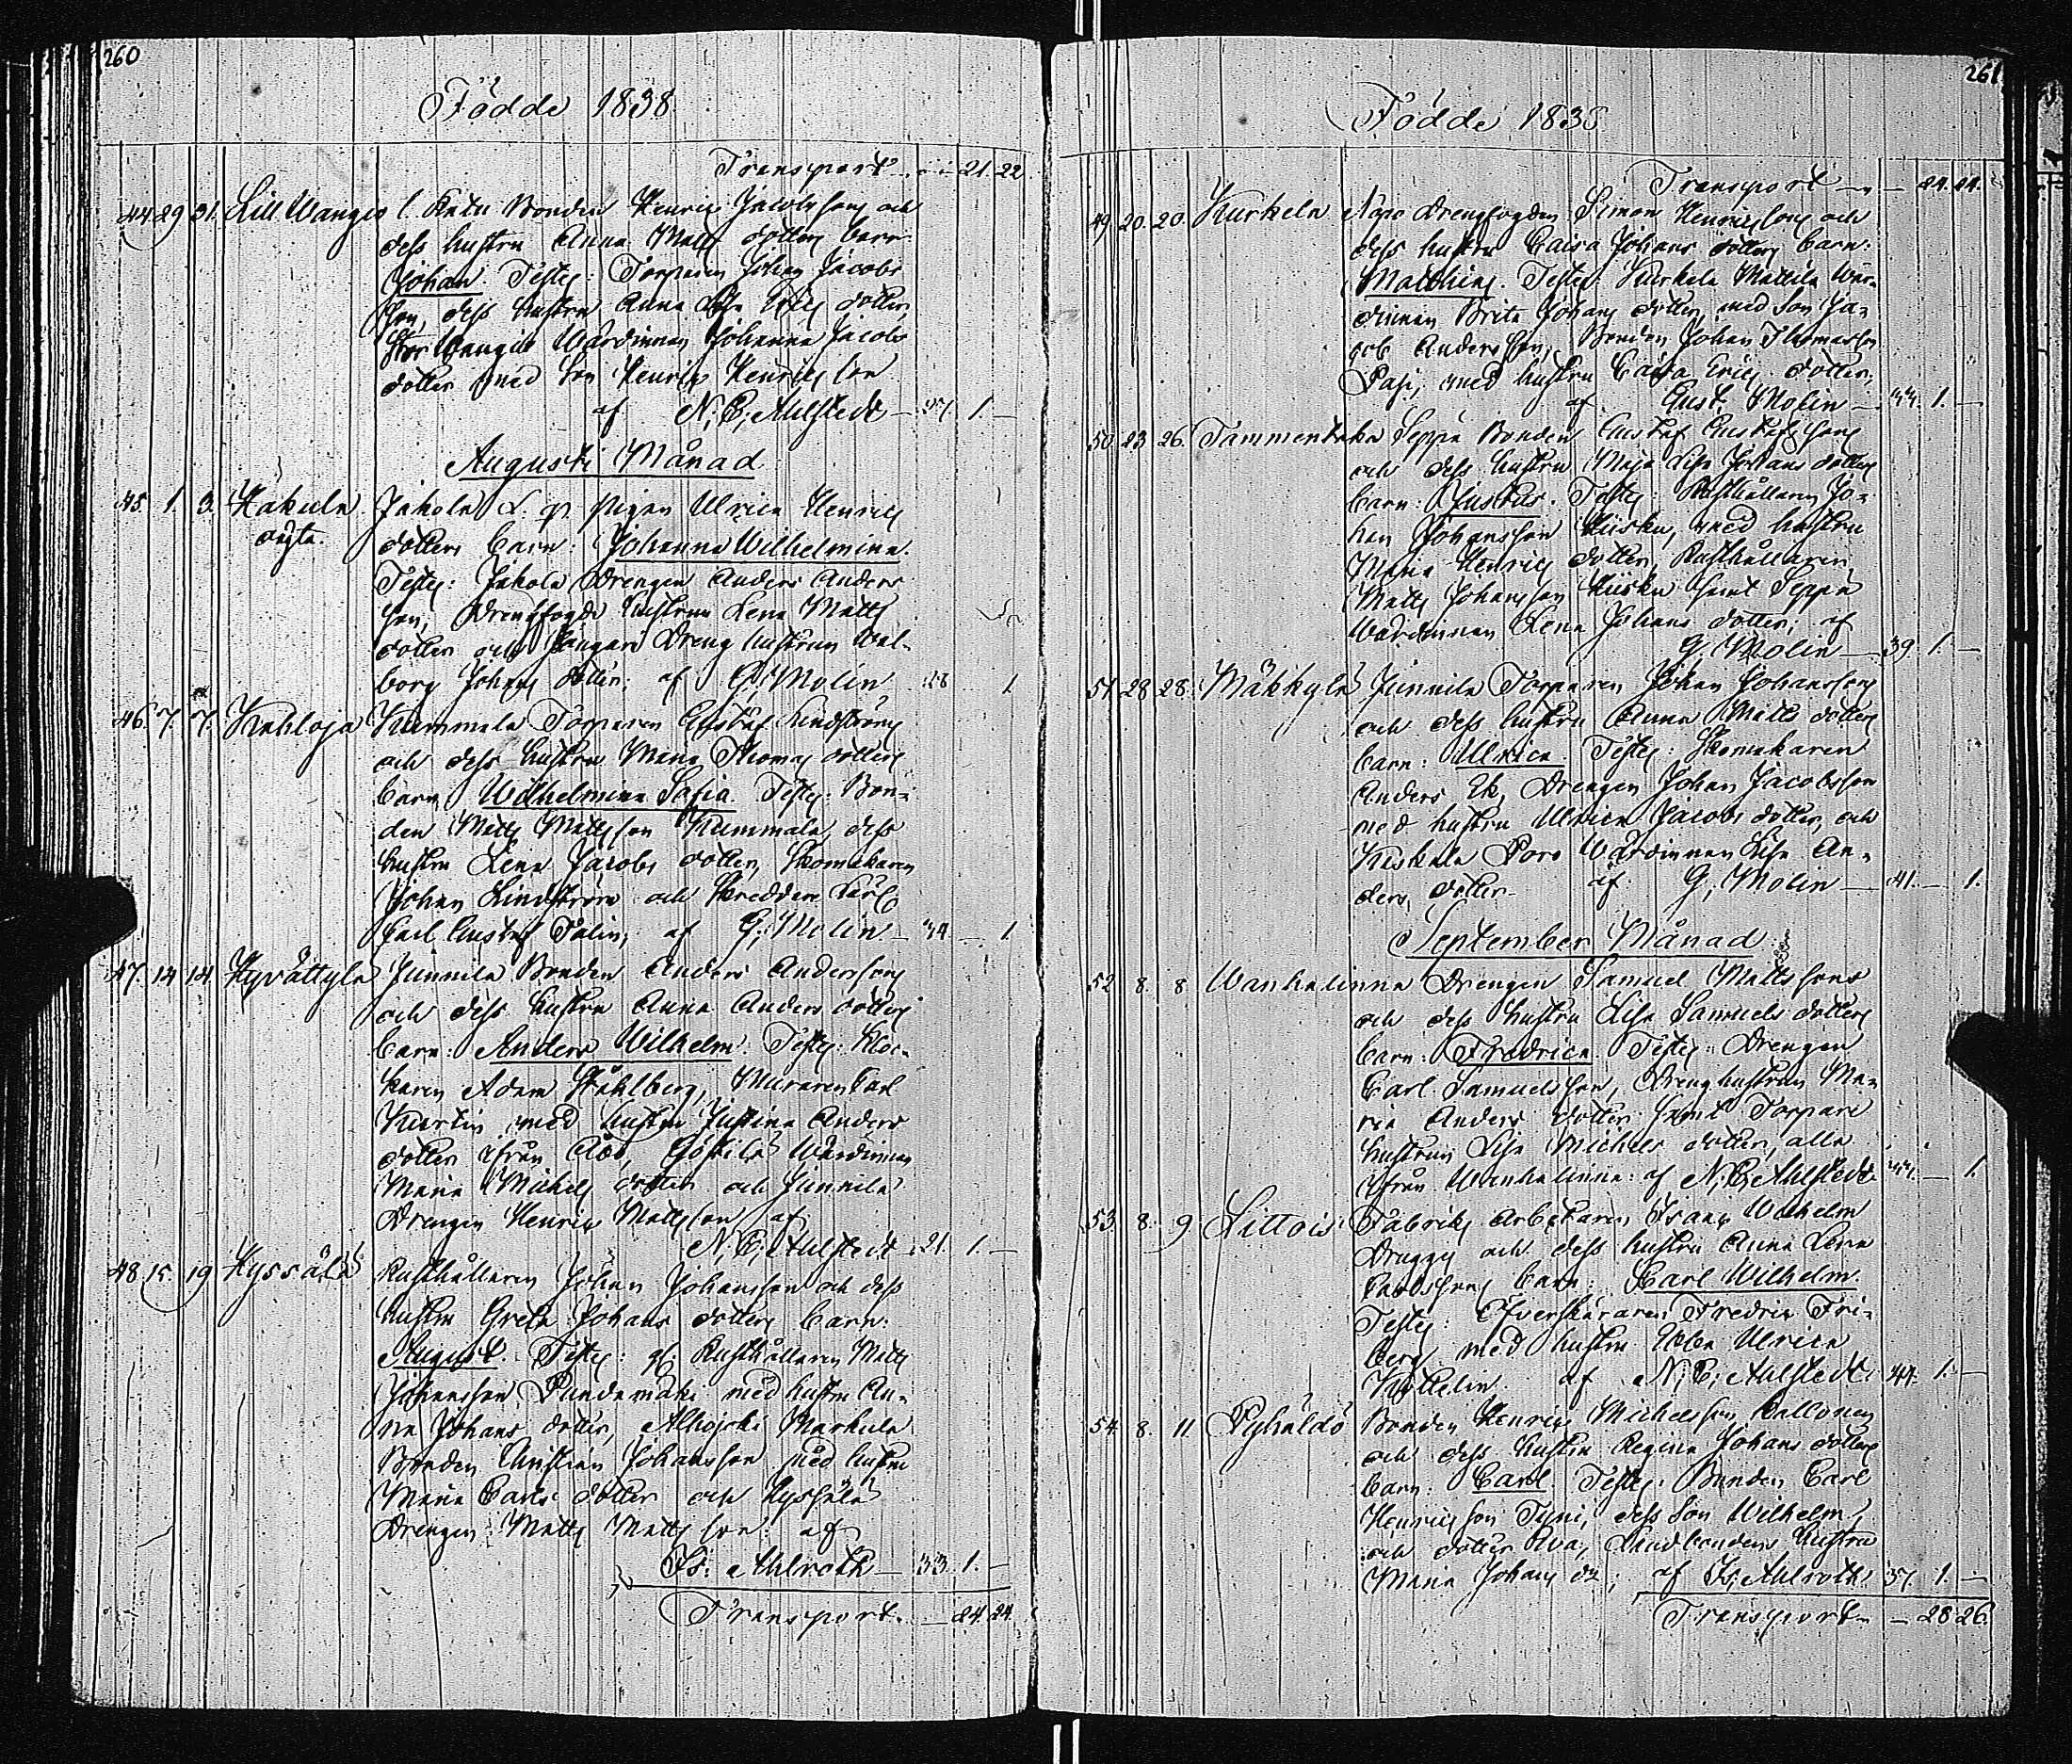 260
Födde 1838.
Transport 21. 22
44. 29. 31. Lill Wangio l. Bonden Henric Jacobsons och
dess hustru Anna Matts dotters barn
Johan. Testes: Torparen Johan Jacobs
son, dess hustru Anna Lisa dotter,
Stor Wangio Wärdinnan Johanna Jacobs
dotter med son Henric Henrics son
af N. E. Ahlstedt — 1. —
Augusti Månad
45. 1. 3. Kakula Jakola pigan Ulrica Henrics
oägta. dotters barn: Johanna Wilhelmina.
Testes: Jakola Drengen Anders Anders
son, Drengfogde hustrun Lena Matts
dotter och Dreng hustrun Wal-
borg Johans dotter; af G. Molin 28 1.
46. 7. 7. Kahloja Kummala Torparen Gustaf Lindströms
och dess hustru Maria Thomas dotters
barn Wilhelmina Sofia. Testes: Bon-
den Matts Mattsson Kummala, dess
hustru Lena Jacobs dotter, Skomakaren
Johan Lindström och Skreddare
Carl Gustaf Palin; af G. Molin — 34 — 1.
47. 14. 14. Hyvättylä Junnila Bonden Anders Andersons
och dess hustru Anna Anders dotters
barn: Anders Wilhelm. Testes: Kloc-
karen Adam Ståhlberg, Muraren Carl
Martin med hustru Justina Anders
dotter ifrån Åbo, Wärdinnan
Maria Michels dotter och Junnila
Drengen Henric Mattsson, af
N. E. Ahlstedt 21. 1. —
48. 15. 19 Hyssälä Rusthållaren Johan Johansson och dess
hustru Greta Johans dotters barn:
August. Testes: Rusthållaren Matts
Johansson Pundamäki med hustru An-
na Johans dotter, Alhojoki Markula
Bonden Christian Johansson med hustru
Maria Carls dotter och Hyssälä
Drengen Matts Matts son: af
Is. Ahlroth — 33 1. —
Transport. — 24. 24.
261
Födde 1838
Transport — 24. 24.
49. 20. 20. Kurkela Drengfogden Simon Henricssons och
dess hustru Caisa Johans dotters barn:
Matthias. Testes: Kurkela Mattila Wär-
dinnan Brita Johans dotter, med son Ja-
cob Andersson, Bonden Johan Thomasson
Pasi, med hustru Caisa Erics dotter,
af Gust. Molin — 44. 1. —
50. 23. 26. Tammentaka Seppä Bonden Gustaf Gustafssons
och dess hustru Maja Lisa Johans dotters
barn: Justus. Testes: Rusthållaren Jo-
han Johansson Kiisku, med hustru
Maria Henrics dotter, Rusthållaren
Matts Johansson Kiisku samt Seppä
Wärdinnan Lena Johans dotter; af
G. Molin — 39. 1. —
51. 28. 28. Mäkkylä Junnila Torparen Johan Johanssons
och dess hustru Anna Matts dotters
barn: Ulrica Testes: Skomakaren
Anders Ek, Drengen Johan Jacobsson
med hustru Ulrica Jacobs dotter, och
Kiskala Wärdinnan Lisa An-
ders dotter. af G. Molin — 41. — 1.
September Månad
52. 8. 8. Wanhalinna Drengen Samuel Mattssons
och dess hustru Lisa Samuels dotters
barn: Fredrica. Testes: Drengen
Carl Samuelsson, Drenghustrun Ma-
ria Anders dotter samt Torpare
hustrun Lisa Michels dotter, alla
ifrån Wanhalinna: af N. E. Ahlstedt — 1.
53. 8. 9 Littois Fabriks Arbetaren Frans Wilhelm
och dess hustru Anna Lena
barn: Carl Wilhelm.
Testes: Öfverskäraren Fredric Fri-
berg med hustru Ebba Ulrica
af N. E. Ahlstedt. 44. 1. —
54. 8. 11 Pyhäldö Bonden Henric Michelsson
och dess hustru Regina Johans dotters
barn: Carl Testes: Bonden Carl
Henricsson dess son Wilhelm,
och dotter Eva, Landbondens hustru
Maria Johans dr; af Is. Ahlroth. 37. 1. —
Transport — 28 26.